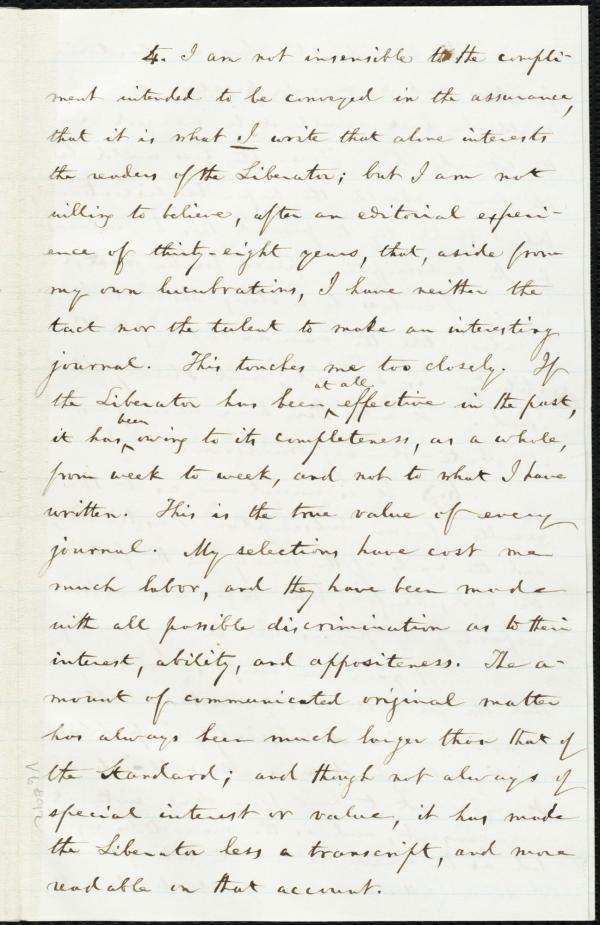 4. I am not insensible to the compli-
ment intended to be conveyed in the assurance,
that it is what I write that alone interests
the readers of the Liberator; but I am not
willing to believe, after an editorial experi-
ence of thirty-eight years, that, aside from
my own lucubrations, I have neither the
tact nor the talent to make an interesting
journal. This touches me too closely. If
at all
the Liberator has been effective in the past,
been
it has owing to its completeness, as a whole,
from week to week, and not to what I have
written. This is the true value of every
journal. My selections have cost me
much labor, and they have been made
with all possible discrimination as to their
interest, ability, and appositeness. The a-
mount of communicated original matter
has always been much larger than that of
the Standard; and though not always of
special interest or value, it has made
the Liberator less a transcript, and more
readable on that account.